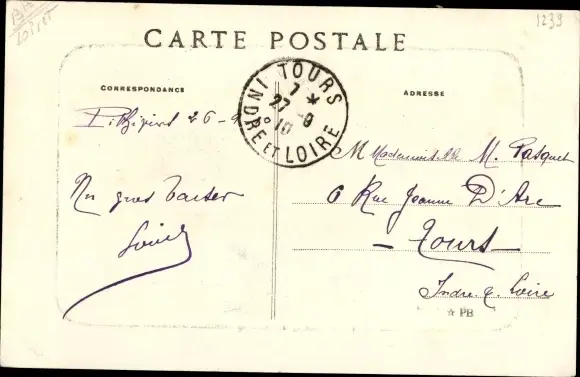 1239
CARTE POSTALE
CORRESPONDANCE
ADRESSE
TOURS
7 *
27-9
10
INDRE ET LOIRE
26-9
Un gros baiser
Louis
M Mademoiselle M. Pasquet
6 Rue Jeanne D'Arc
- Tours -
Indre & Loire
☆ PB